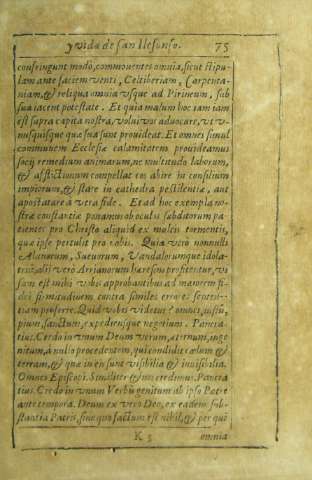 y vida de san Ilefonso. 75
confringunt modò, commouentes omnia, sicut stipu-
lam ante faciem venti, Celtiberiam, Carpenta-
niam, & reliqua omnia vsque ad Pirineum, sub
sua iacent potestate. Et quia malum hoc iam iam
est supra capita nostra, volui vos aduocare, vt v-
nusquisque quæ sua sunt prouideat. Et omnes simul
communem Ecclesiæ calamitatem prouideamus
socij remedium animarum, ne multitudo laborum,
& afflictionum compellat eos abire in consilium
impiorum, & stare in cathedra pestilentiæ, aut
apostatare à vera fide. Et ad hoc exempla no-
stræ constantiæ ponamus ob oculis subditorum pa-
tientes pro Christo aliquid ex multis tormentis,
quæ ipse pertulit pro nobis. Quia verò nonnulli
Alanorum, Sueuorum, Vandalorumque idola-
triæ, alij verò Arrianorum hæresim profitentur, vi
sum est mihi vobis approbantibus ad maiorem fi-
dei firmitudinem contra similes errores senten-
tiam proferre. Quid vobis videtur? omnes, iustũ,
pium, sanctum, expediensque negotium. Pancra-
tius. Credo in vnum Deum verum, æternum, inge
nitum, à nullo procedentem, qui condidit cælum &
terram, & quæ in eis sunt visibilia & inuisibilia.
Omnes Episcopi. Similiter & nos credimus. Pancra
tius. Credo in vnum Verbũ genitum ab ipso Patre
ante tempora. Deum ex vero Deo, ex eadem sub-
stantia Patris, sine quo factum est nihil, & per quẽ
K 3 omnia